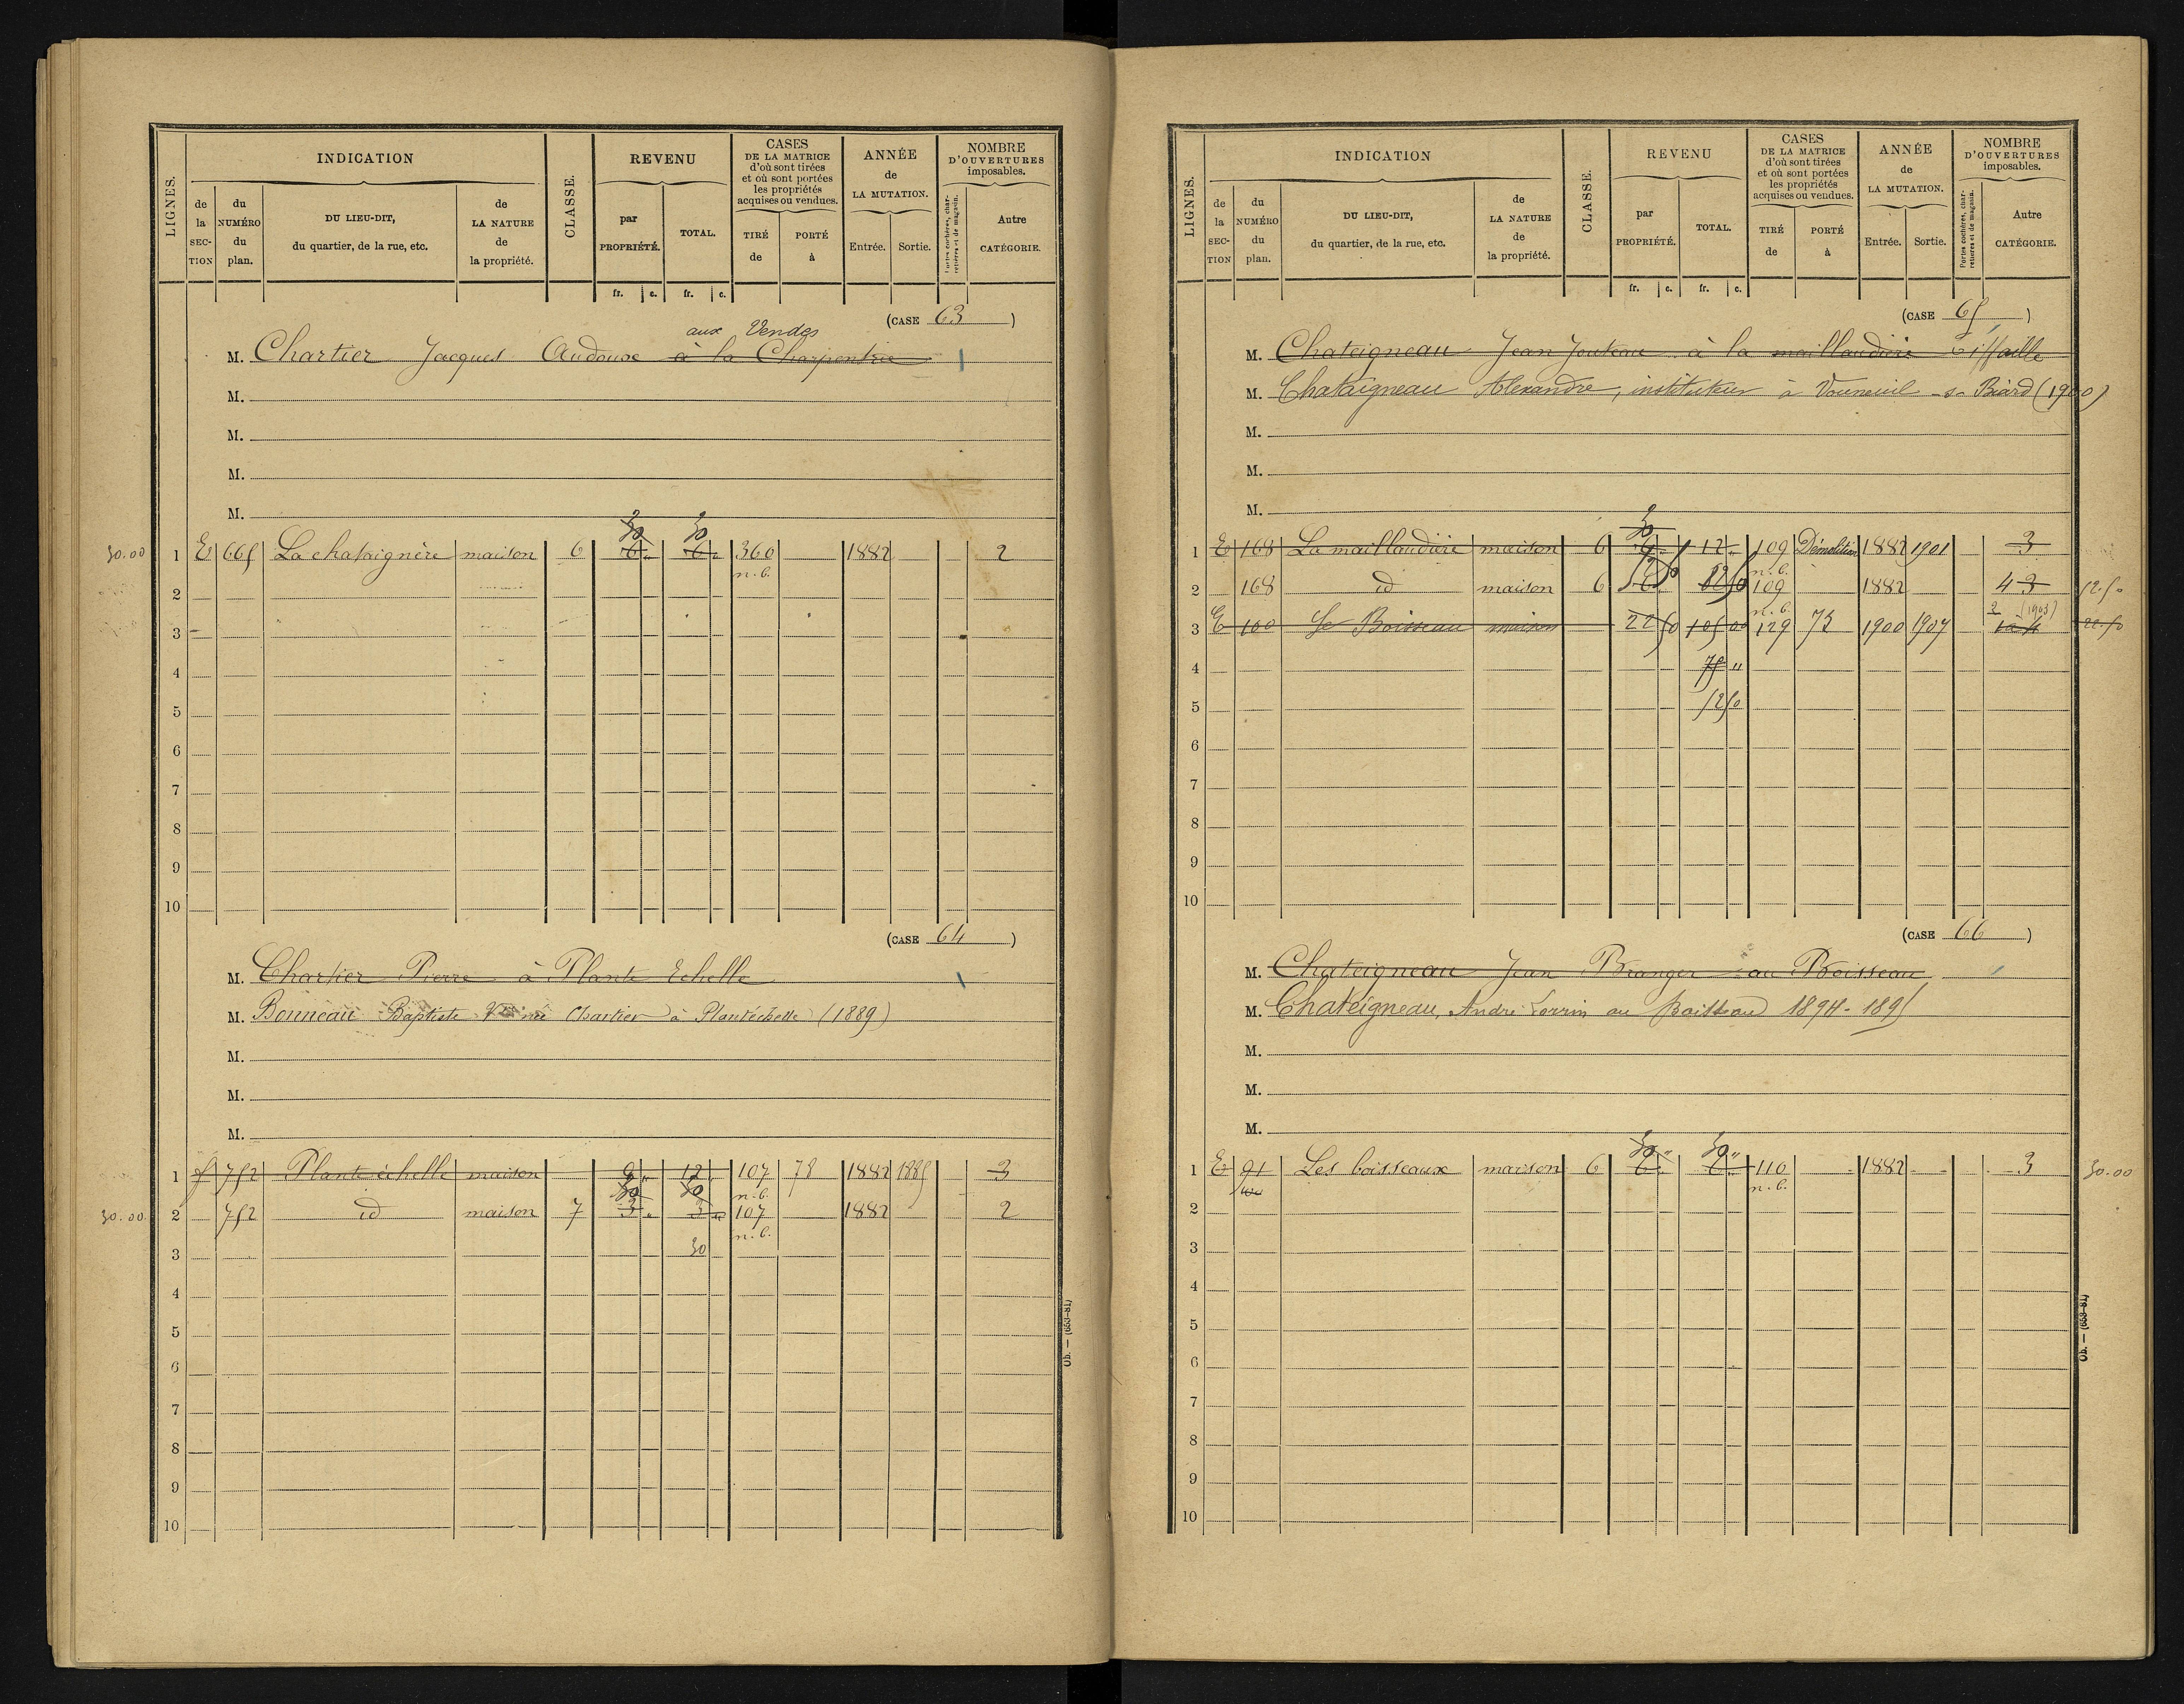 LIGNES.
INDICATION
de la SECTION
du NUMÉRO du plan.
DU LIEU-DIT, du quartier, de la rue, etc.
de LA NATURE de la propriété.
CLASSE.
REVENU
par PROPRIÉTÉ.
TOTAL.
fr. c. fr. c.
CASES DE LA MATRICE d'où sont tirées et où sont portées les propriétés acquises ou vendues.
TIRÉ de
PORTÉ à
ANNÉE de LA MUTATION.
Entrée. Sortie.
NOMBRE D'OUVERTURES imposables.
Portes cochères, charretières et de magasin.
Autre CATÉGORIE.
(CASE 63 )
aux Vendes
M. Chartier Jacques Audouse à la Charpentrie
M.
M.
M.
M.
30 30
30.00 1 E 665 La chataignère maison 6 6 " 6 " 360 1882 2
n.b.
2
3
4
5
6
7
8
9
10
(CASE 64 )
M. Chartier Pierre à Plante Echelle
M. Bonneau Baptiste Chartier à Plantéchelle (1889)
M.
M.
M.
1 752 Plante échelle maison 9 " 12 " 107 78 1882 1885 3
30 30 n.b.
30.00 2 752 id maison 7 3 " 3 " 107 1882 2
n.b.
3 30
4
5
6
7
8
9
10
Ob. — (653-81)
LIGNES.
INDICATION
de la SECTION
du NUMÉRO du plan.
DU LIEU-DIT, du quartier, de la rue, etc.
de LA NATURE de la propriété.
CLASSE.
REVENU
par PROPRIÉTÉ.
TOTAL.
fr. c. fr. c.
CASES DE LA MATRICE d'où sont tirées et où sont portées les propriétés acquises ou vendues.
TIRÉ de
PORTÉ à
ANNÉE de LA MUTATION.
Entrée. Sortie.
NOMBRE D'OUVERTURES imposables.
Portes cochères, charretières et de magasin.
Autre CATÉGORIE.
(CASE 65 )
M. Chateigneau Jean Jouteau à la maillaudière
M. Chataigneau Alexandre, instituteur à Vouneuil -s- Biard (1900)
M.
M.
M.
30
1 E 168 La maillaudière maison 6 12 " 109 Démolition 1882 1901 3
n.b.
2 168 id maison 6 109 1882 4 3 12.50
n.b. 2 (1903)
3 E 100 Le Boisseau maison 22 50 105 00 129 73 1900 1907 22.50
4 75 "
5 12 50
6
7
8
9
10
(CASE 66 )
M. Chateigneau Jean Branger au Boisseau
M. Chateigneau, André Lorrin au boisseau 1894-1895
M.
M.
M.
30 " 30 "
1 E 91 Les boisseaux maison 6 6 " 6 " 110 1882 3 30.00
n.b.
2
3
4
5
6
7
8
9
10
Ob. — (653-81)